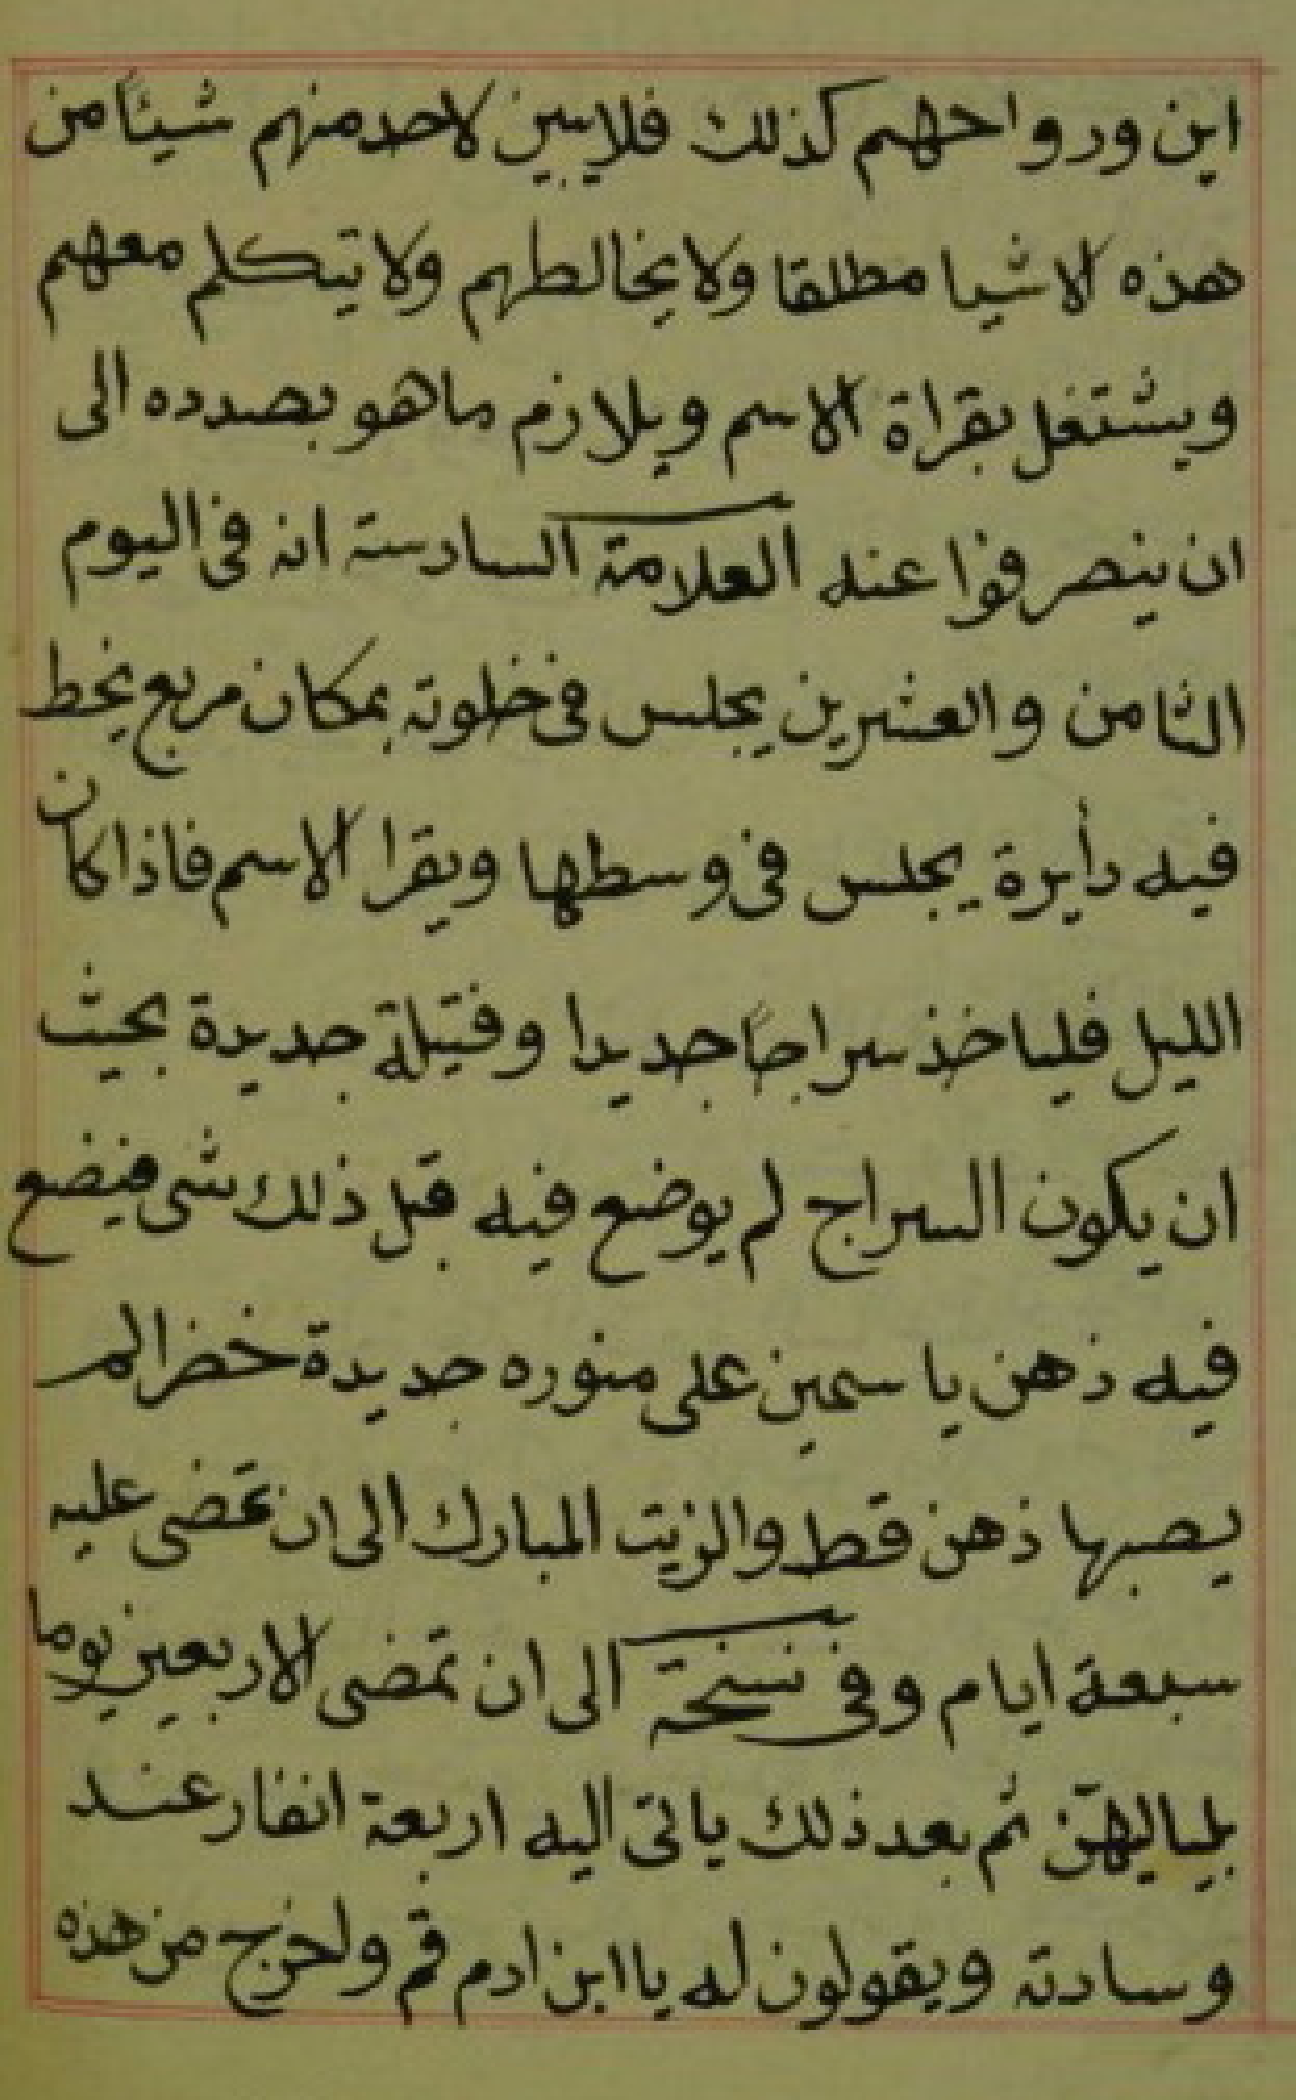 اين ورواحهم كذلك فلايبين لاحد منهم شيئاً من
هذه الاشيا مطلقا ولا يخالطهم ولا يتكلم معهم
ويشتغل بقراة الاسم ويلازم ما هو بصدده الى
ان ينصرفوا عنه العلامة السادسة انه فى اليوم
الثامن والعشرين يجلس فى خلوته بمكان مربع يخط
فيه دأيرة يجلس فى وسطها ويقرا الاسم فاذا كان
الليل فلياخذ سراجاً جديدا وفتيلة جديدة بحيث
ان يكون السراج لم يوضع فيه قبل ذلك شى فيضع
فيه ذهن ياسمين على منوره جديدة خضرا لم
يصبها ذهن قط والزيت المبارك الى ان تمضى عليه
سبعة ايام وفى نسخة الى ان تمضى الاربعين يوما
بلياليهنّ ثم بعد ذلك ياتى اليه اربعة انفار عند
وسادته ويقولون له يا ابن ادم قم ولخرج من هذه